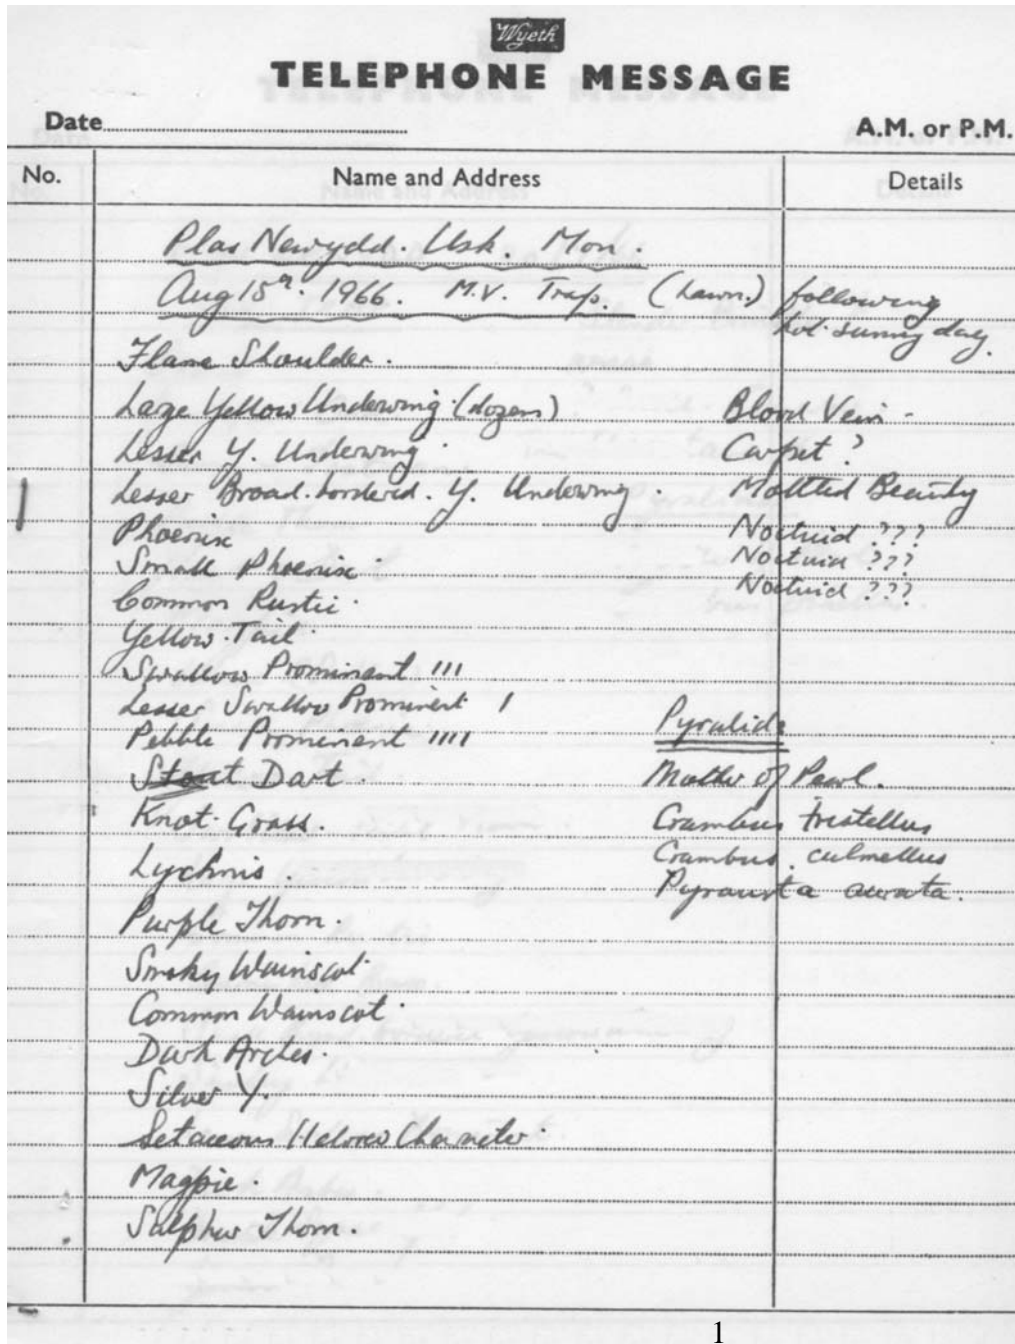 Wyeth
TELEPHONE MESSAGE
Date
A.M. or P.M.
No.
Name and Address
Details
Plas Newydd. Usk. Mon.
Aug 15th. 1966. M.V. Trap. (Lawn.) following
hot sunny day.
Flame Shoulder.
Large Yellow Underwing (dozens)
Lesser Y. Underwing.
Lesser Broad. bordered. Y. Underwing.
Phoenix
Small Phoenix
Common Rustic.
Yellow. Tail.
Swallow Prominent III
Lesser Swallow Prominent I
Pebble Prominent IIII
Dart.
Knot. Grass.
Lychnis.
Purple Thorn.
Smoky Wainscot.
Common Wainscot.
Dark Arches.
Silver Y.
Setaceous Hebrew Character.
Magpie.
Sulphur Thorn.
Blood Vein -
Carpet ?
Mottled Beauty
Noctuid ???
Noctuid ???
Noctuid ???
Pyralids
Mother of Pearl.
Crambus tristellus
Crambus. culmellus
Pyrausta aurata.
1